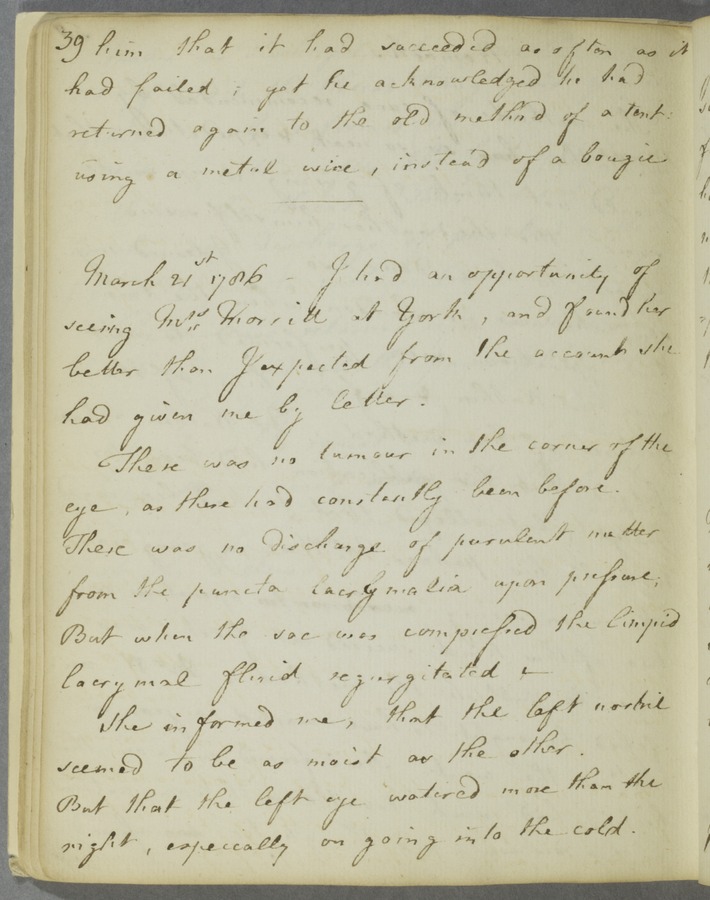 39 him that it had succeeded as often as it
had failed; yet he acknowledged he had
returned again to the old method of a tent:
using a metal wire, instead of a bougie
March 21st 1786 - I had an opportunity of
seeing Mrs Morritt at York, and found her
better than I expected from the account she
had given me by letter.
There was no tumour in the corner of the
eye, as there had constantly been before.
There was no discharge of purulent matter
from the puncta lacrymalia upon pressure;
But when the sac was compressed the limpid
lacrymal fluid regurgitated
She informed me, that the left nostril
seemed to be as moist as the other.
But that the left eye watered more than the
right, especially on going into the cold.